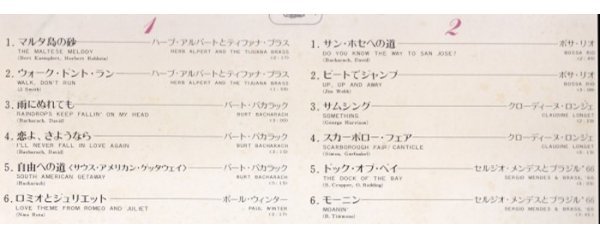 1
1. マルタ島の砂 ハーブ・アルパートとティファナ・ブラス
THE MALTESE MELODY HERB ALPERT AND THE TIJUANA BRASS
(Bert Kaempfert, Herbert Rehbein)
2. ウォーク・ドント・ラン ハーブ・アルパートとティファナ・ブラス
WALK, DON'T RUN HERB ALPERT AND THE TIJUANA BRASS
(J. Smith)
3. 雨にぬれても バート・バカラック
RAINDROPS KEEP FALLIN' ON MY HEAD BURT BACHARACH
(Bacharach, David)
4. 恋よ、さようなら バート・バカラック
I'LL NEVER FALL IN LOVE AGAIN BURT BACHARACH
(Bacharach, David)
5. 自由への道〈サウス・アメリカン・ゲッタウェイ〉 バート・バカラック
SOUTH AMERICAN GETAWAY BURT BACHARACH
(Bacharach)
6. ロミオとジュリエット ポール・ウィンター
LOVE THEME FROM ROMEO AND JULIET PAUL WINTER
(Nino Rota)
2
1. サン・ホセへの道 ボサ・リオ
DO YOU KNOW THE WAY TO SAN JOSE? BOSSA RIO
(Bacharach, David)
2. ビートでジャンプ ボサ・リオ
UP, UP AND AWAY BOSSA RIO
(Jim Webb)
3. サムシング クローディーヌ・ロンジェ
SOMETHING CLAUDINE LONGET
(George Harrison)
4. スカーボロー・フェア クローディーヌ・ロンジェ
SCARBOROUGH FAIR/CANTICLE CLAUDINE LONGET
(Simon, Garfunkel)
5. ドック・オブ・ベイ セルジオ・メンデスとブラジル'66
THE DOCK OF THE BAY SERGIO MENDES & BRASIL '66
(S. Cropper, O. Redding)
6. モーニン セルジオ・メンデスとブラジル'66
MOANIN' SERGIO MENDES & BRASIL '66
(B. Timmons)